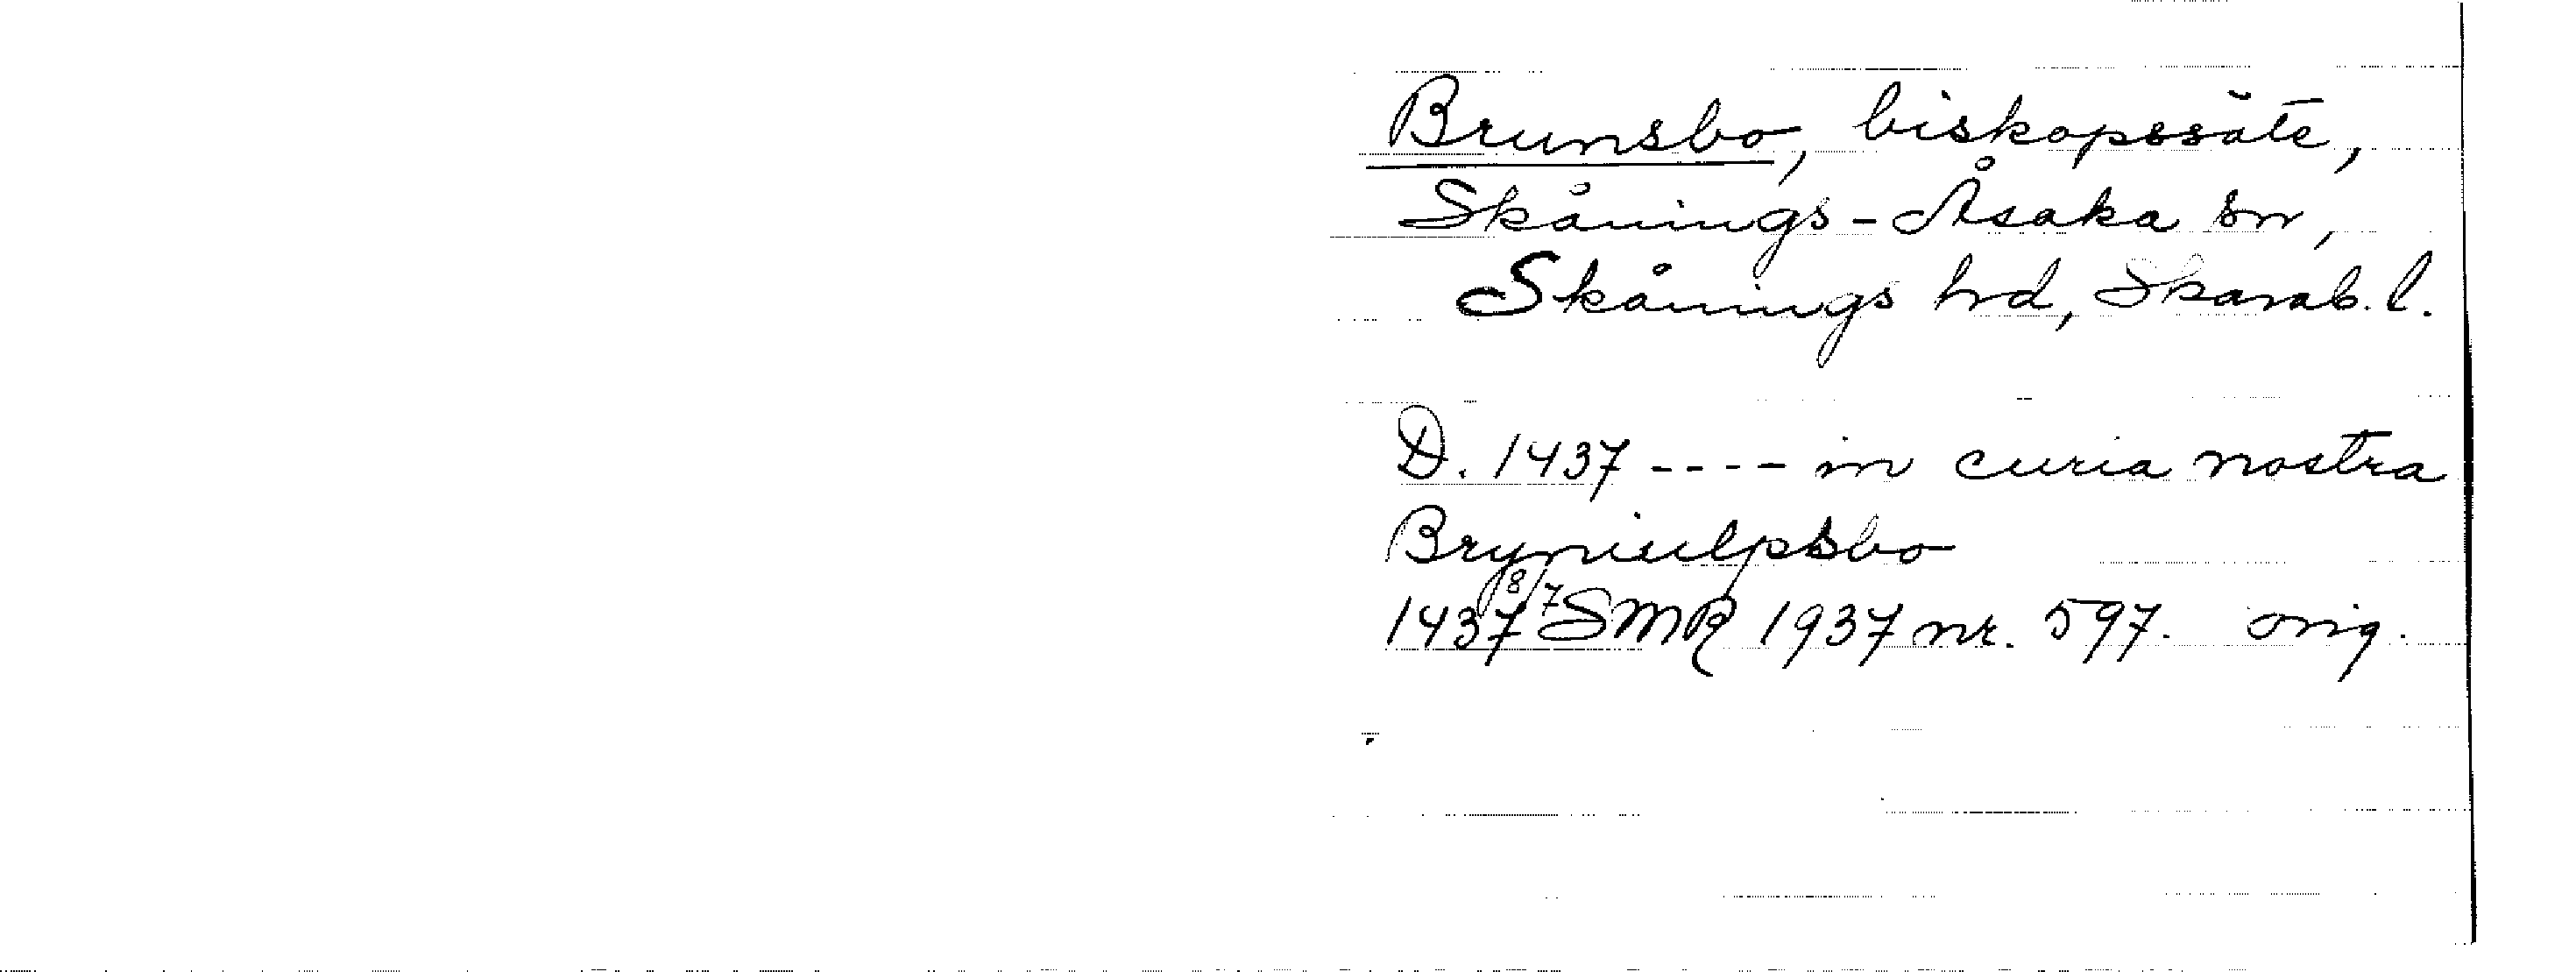 Brunsbo, biskopssäte,
Skånings-Åsaka sn,
Skånings hd, Skarab. l.
D. 1437 ---- in curia nostra
Bryniulpsbo
1437 8/7 SMR 1937 nr. 597. orig.